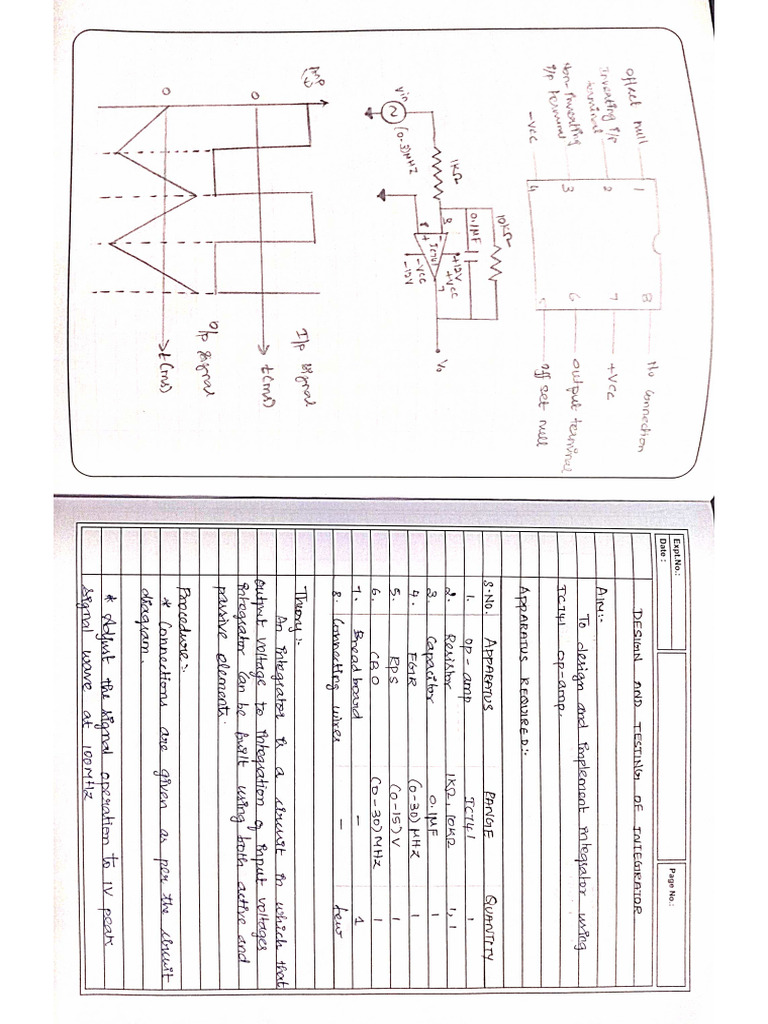 offset null
Inverting i/p
terminal
Non-Inverting
i/p terminal
-Vcc
1
2
3
4
8
7
6
5
No connection
+Vcc
output terminal
Off set null
Vin
(0-3)MHZ
1KΩ
10KΩ
0.1MF
IC741
+12V
+Vcc
-Vcc
-12V
7
V0
Amp
(v)
0
0
I/p signal
t(ms)
O/p signal
t(ms)
Expt.No.:
Date :
Page No.:
DESIGN AND TESTING OF INTEGRATOR
AIM:-
To design and implement integrator using
IC741 op-amp.
APPARATUS REQUIRED:-
S.No. APPARATUS RANGE QUANTITY
1. op-amp IC741 1
2. Resistor 1KΩ, 10KΩ 1, 1
3. Capacitor 0.1MF 1
4. FGR (0-30)MHZ 1
5. RPS (0-15)V 1
6. CRO (0-30)MHZ 1
7. Breadboard - 1
8. Connecting wires - few
Theory:-
An integrator is a circuit in which that
output voltage to integration of input voltages
integrator can be built using both active and
passive elements.
Procedure:-
* Connections are given as per the circuit
diagram.
* Adjust the signal operation to 1V peak
signal wave at 100MHZ